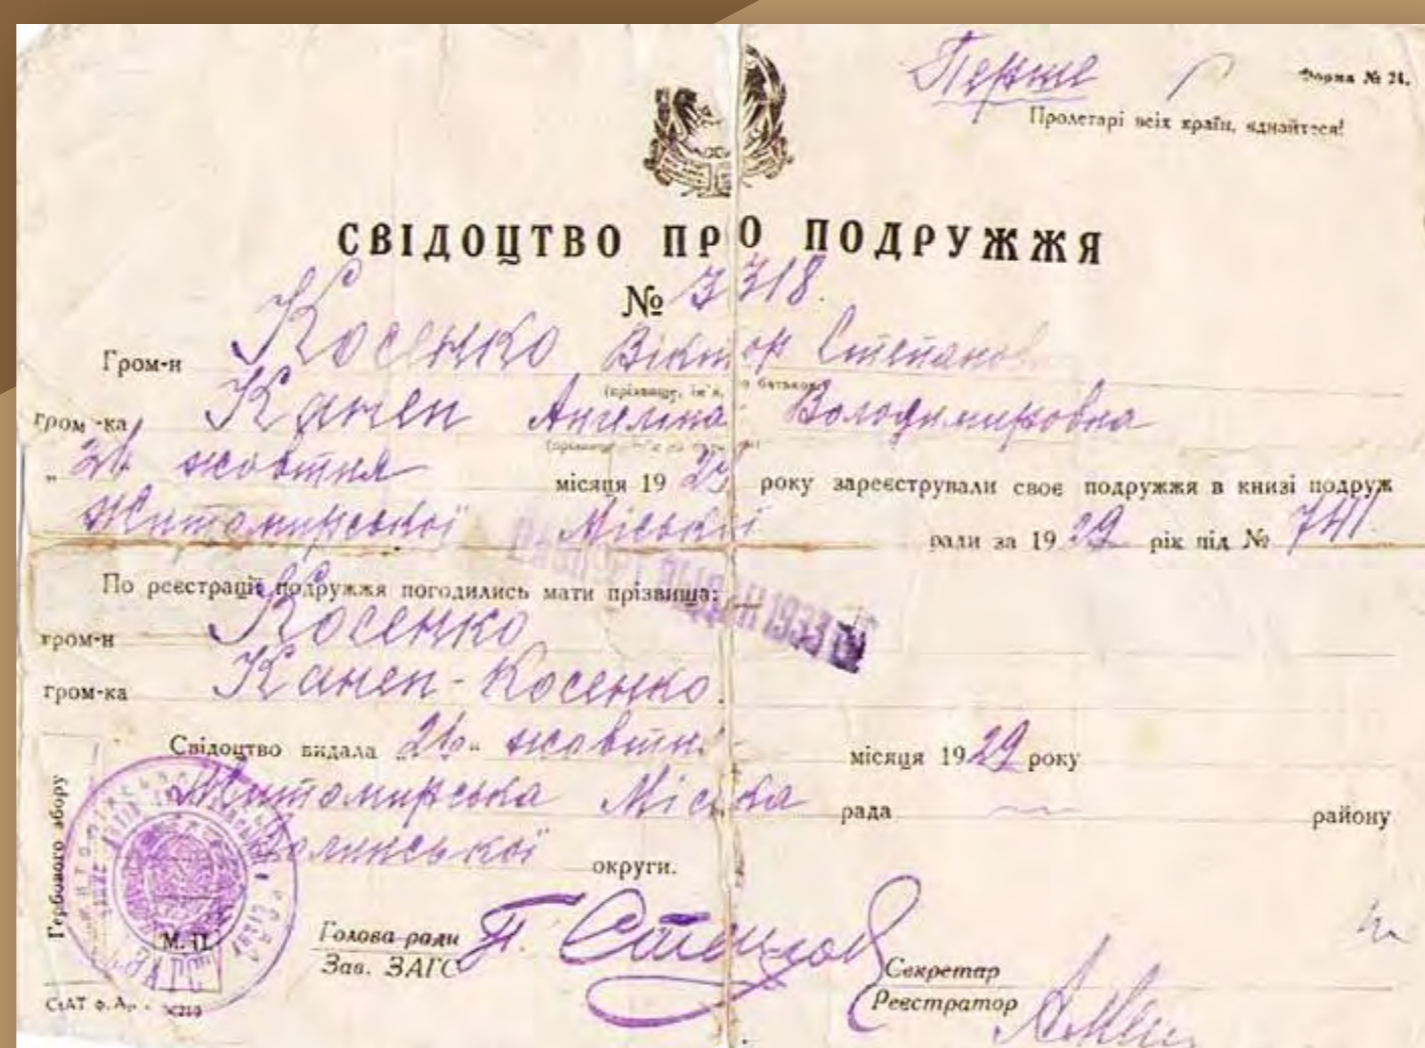 Перше
Форма № 24.
Пролетарі всіх країн, єднайтеся!
СВІДОЦТВО ПРО ПОДРУЖЖЯ
№ 3318.
Гром-н Косенко Віктор Степанов
(прізвище, ім'я, по батькові)
гром-ка Канеп Ангеліна Володимировна
„26 жовтня місяця 1929 року зареєстрували своє подружжя в книзі подруж
Житомирської Міської ради за 1929 рік під № 741.
По реєстрації подружжя погодились мати прізвища:
гром-н Косенко
гром-ка Канеп-Косенко.
Свідоцтво видала „26„ жовтн. місяця 1929 року
Житомирська Міська рада району
Волинської округи.
Гербового збору
М. П.
Голова ради
Зав. ЗАГС
Секретар
Реєстратор